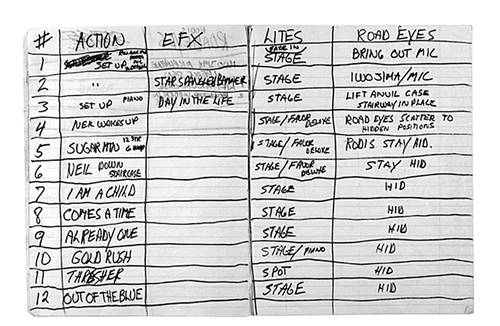 # ACTION EFX LITES ROAD EYES
1 SET UP FADE IN STAGE BRING OUT MIC
2 " STAR SPANGLED BANNER STAGE IWO JIMA/MIC
3 SET UP PIANO DAY IN THE LIFE STAGE LIFT ANVIL CASE
STAIRWAY IN PLACE
4 NEIL WAKES UP STAGE/FAVOR DELUXE ROAD EYES SCATTER TO
HIDDEN POSITIONS
5 SUGAR MTN 12 STR STAGE/FAVOR DELUXE STAY HID.
6 NEIL DOWN STAIRCASE STAGE/FAVOR DELUXE STAY HID
7 I AM A CHILD STAGE HID
8 COMES A TIME STAGE HID
9 ALREADY ONE STAGE HID
10 GOLD RUSH STAGE/PIANO HID
11 THRASHER SPOT HID
12 OUT OF THE BLUE STAGE HID